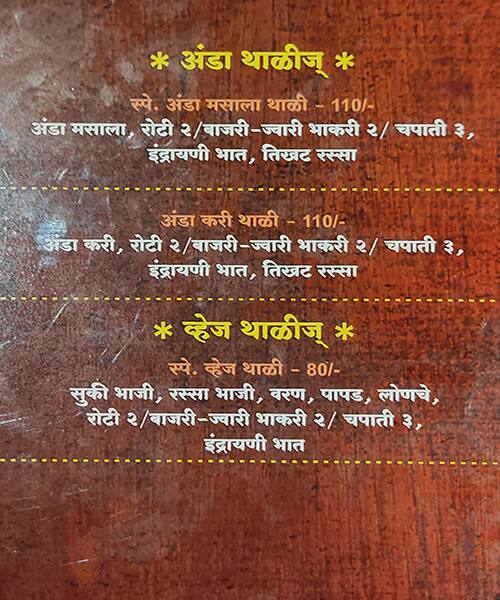 * अंडा थाळीज् *
स्पे. अंडा मसाला थाळी - 110/-
अंडा मसाला, रोटी २/बाजरी-ज्वारी भाकरी २/ चपाती ३,
इंद्रायणी भात, तिखट रस्सा
अंडा करी थाळी - 110/-
अंडा करी, रोटी २/बाजरी-ज्वारी भाकरी २/ चपाती ३,
इंद्रायणी भात, तिखट रस्सा
* व्हेज थाळीज् *
स्पे. व्हेज थाळी - 80/-
सुकी भाजी, रस्सा भाजी, वरण, पापड, लोणचे,
रोटी २/बाजरी-ज्वारी भाकरी २/ चपाती ३,
इंद्रायणी भात